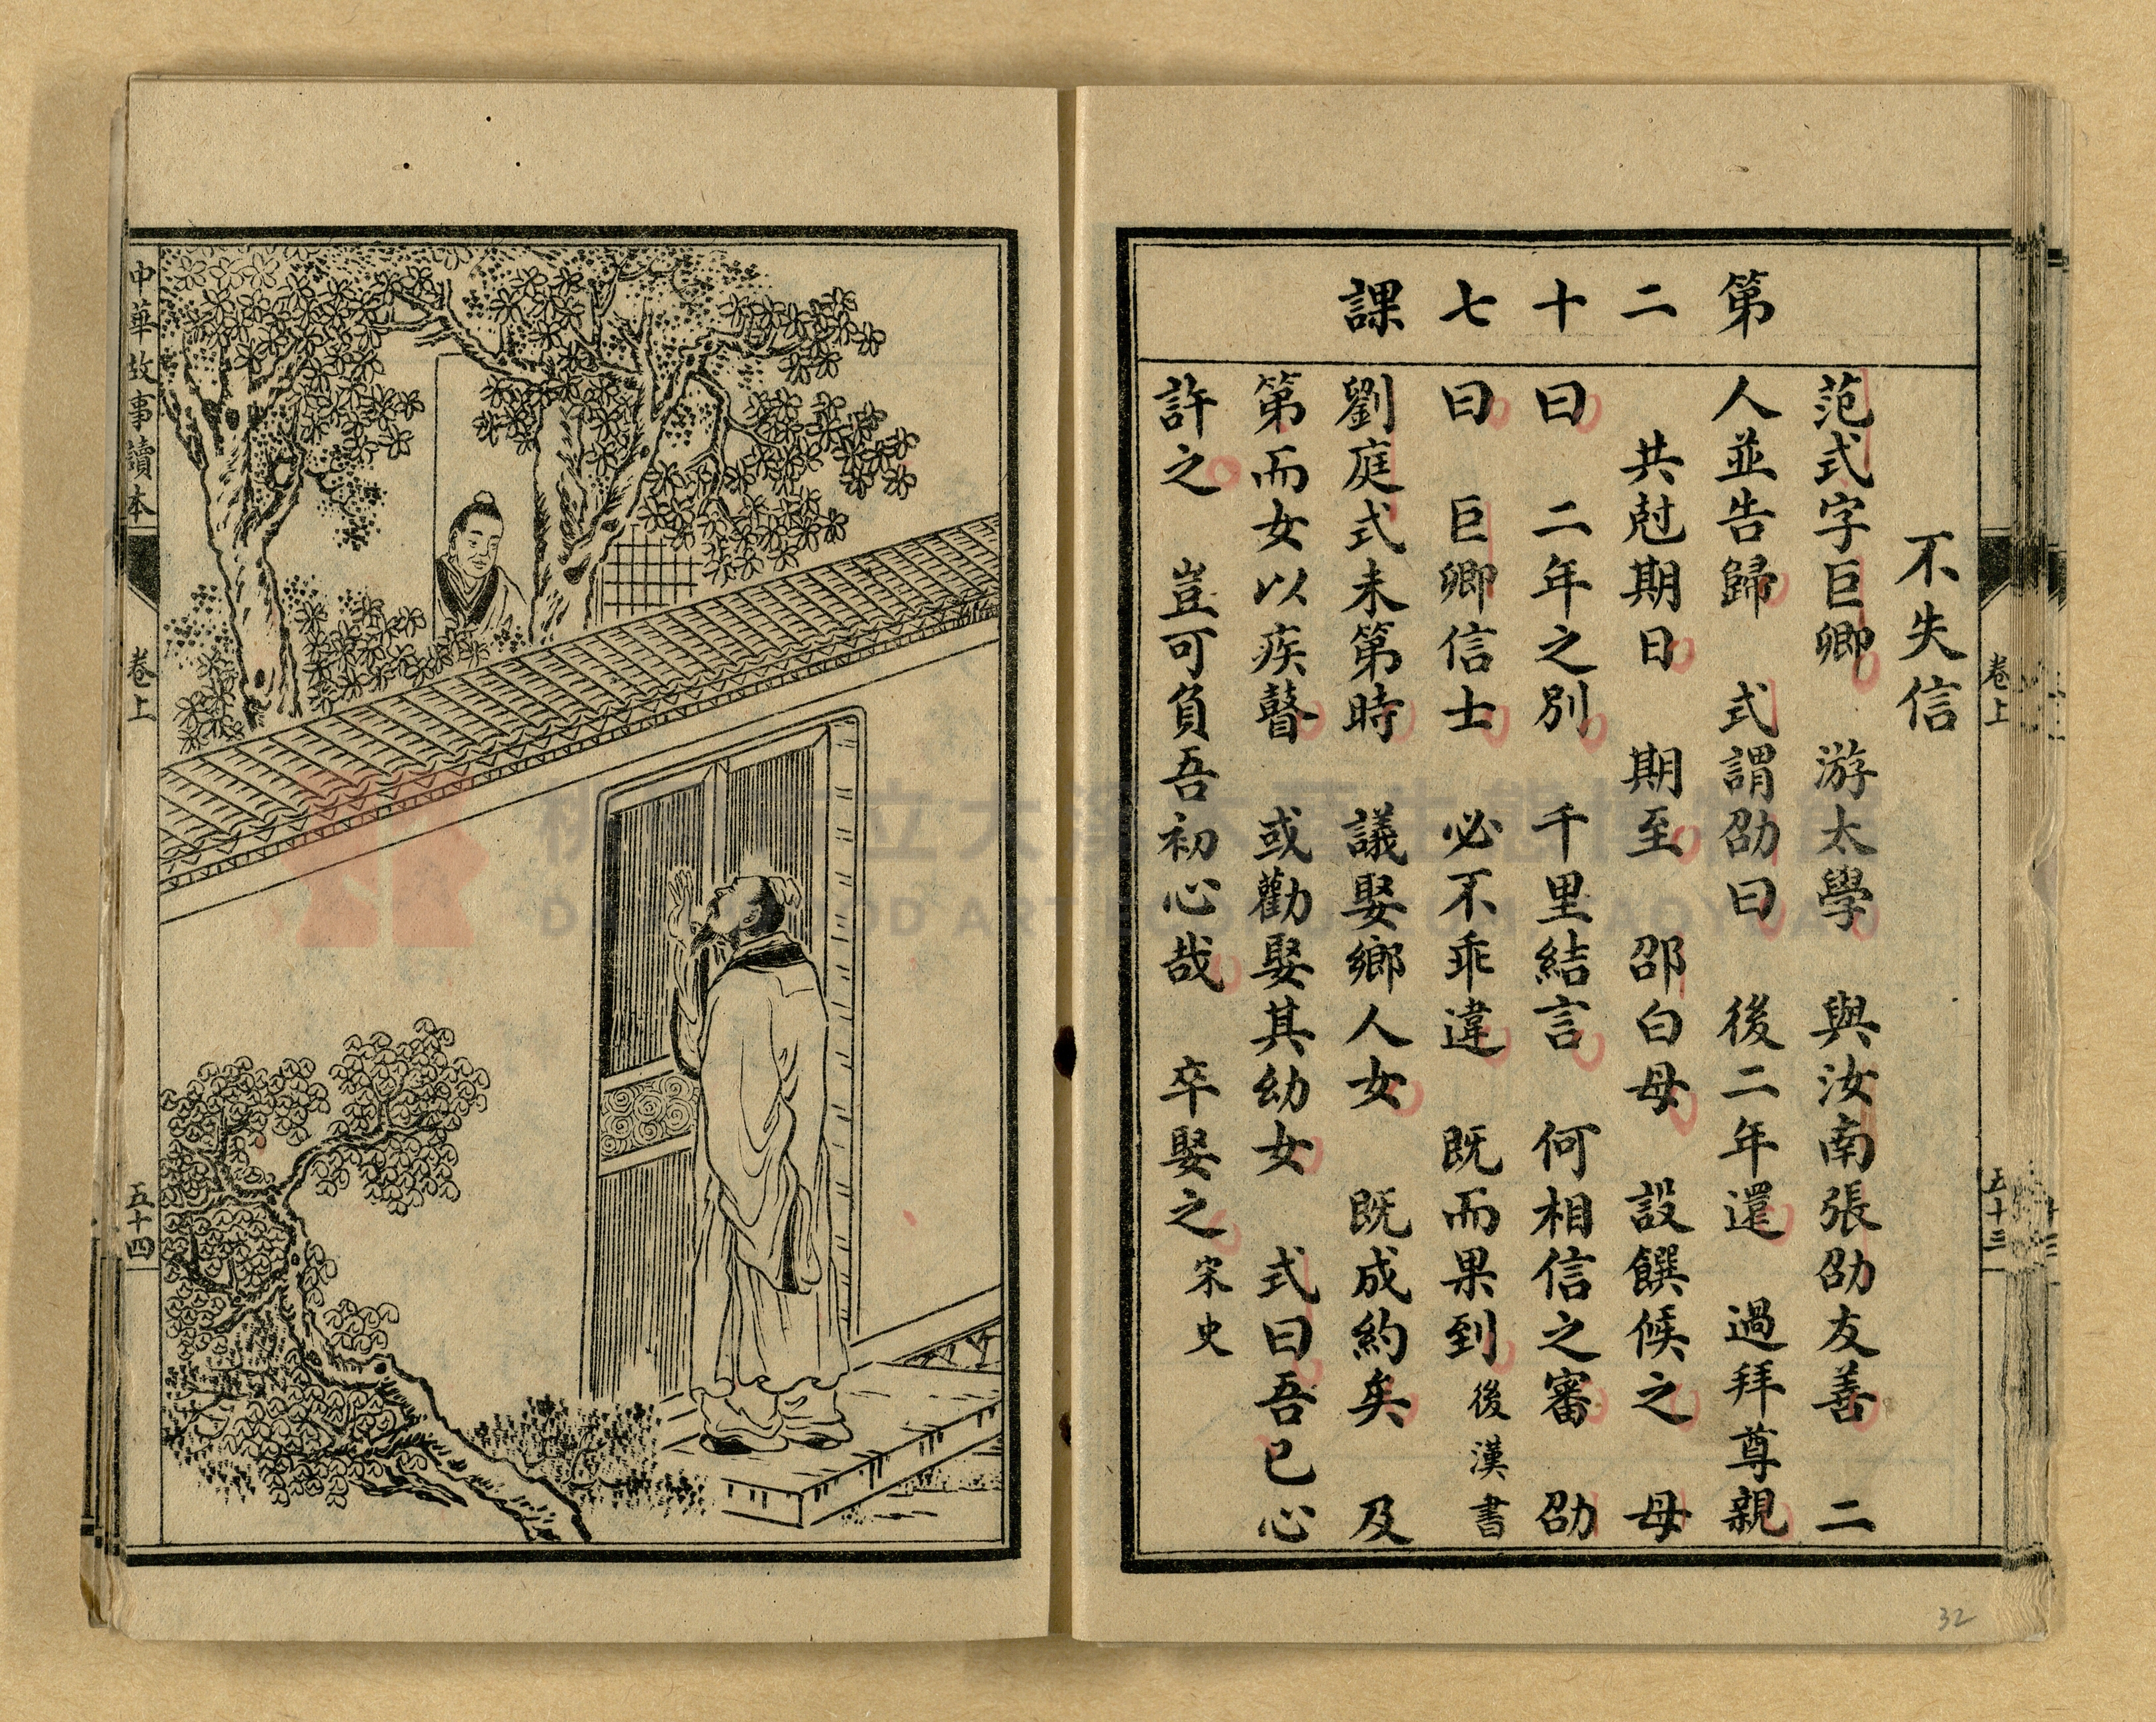 卷上
五十三
第二十七課
不失信
范式字巨卿　游太學　與汝南張劭友善　二
人並告歸　式謂劭曰　後二年還　過拜尊親
共尅期日　期至　邵白母　設饌候之　母
曰　二年之別　千里結言　何相信之審　劭
曰　巨卿信士　必不乖違　既而果到後漢書
劉庭式未第時　議娶鄉人女　既成約矣　及
第而女以疾瞽　或勸娶其幼女　式曰吾已心
許之　豈可負吾初心哉　卒娶之宋史
32
中華故事讀本
卷上
五十四